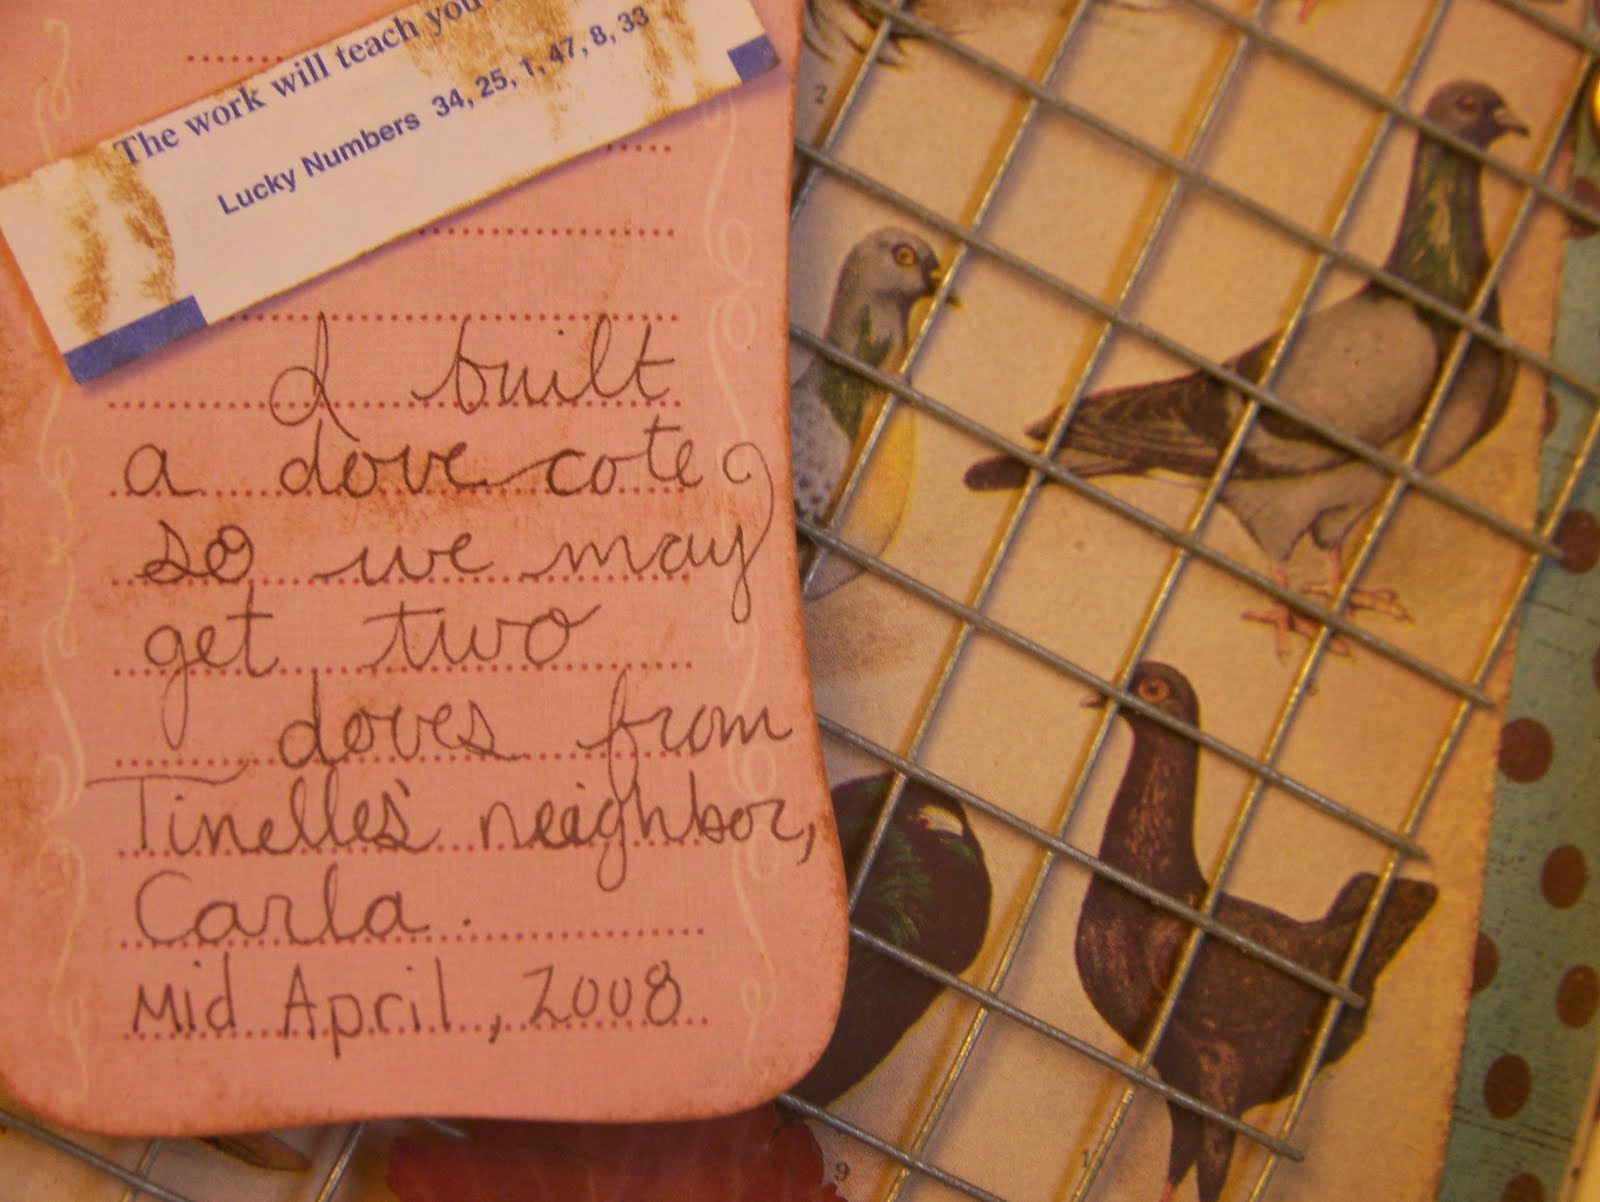 The work will teach you
Lucky Numbers 34, 25, 1, 47, 8, 33
I built
a dove cote
so we may
get two
doves from
Tinelle's neighbor,
Carla.
Mid April, 2008
2
9